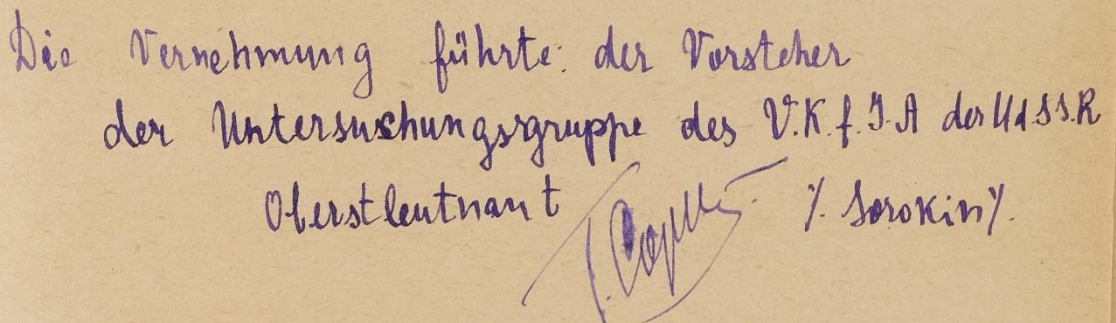 Die Vernehmung führte: der Vorsteher
der Untersuchungsgruppe des V.K.f.I.A der UdSSR
Oberstleutnant /. Sorokin/.